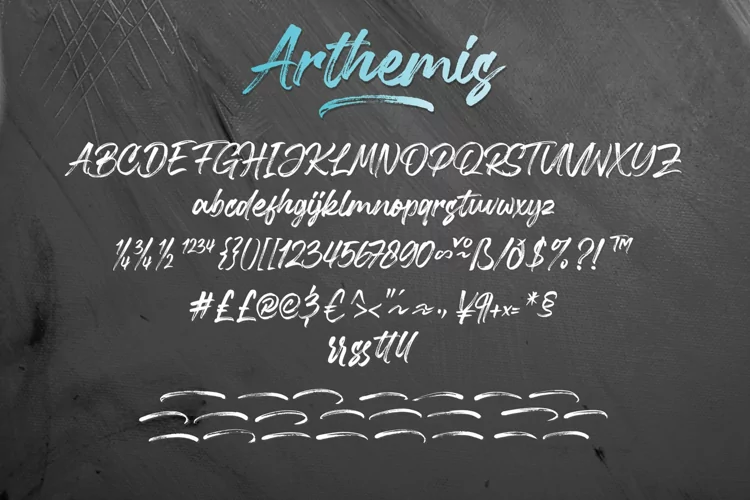 Arthemis
ABCDEFGHIJKLMNOPQRSTUVWXYZ
abcdefhgijklmnopqrstuvwxyz
¼ ¾ ½ ¹²³⁴ {}()[[1234567890
ß/ð $ % ?! ™
#££@©
€
¥¶+x= * §
rrssttll